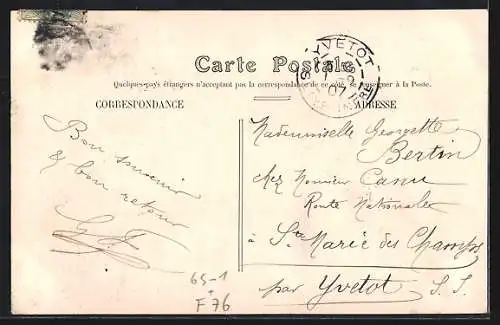 YVETOT
Carte Postale
Quelques pays étrangers n'acceptant pas la correspondance de ce côté, se renseigner à la Poste.
CORRESPONDANCE
ADRESSE
Bon souvenir
& bon retour
Mademoiselle Georgette
Bertin
chez Monsieur Canu
Route Nationale
à Ste Marie des Champs
par Yvetot S. I.
65-1
F 76